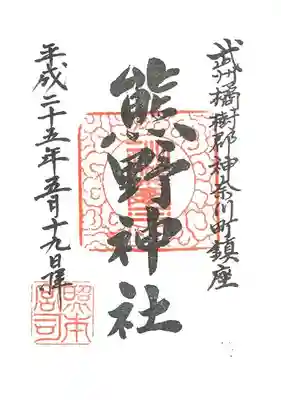 武州橘樹郡神奈川町鎮座
熊野神社
平成二十五年五月十九日拝
照本
宮司